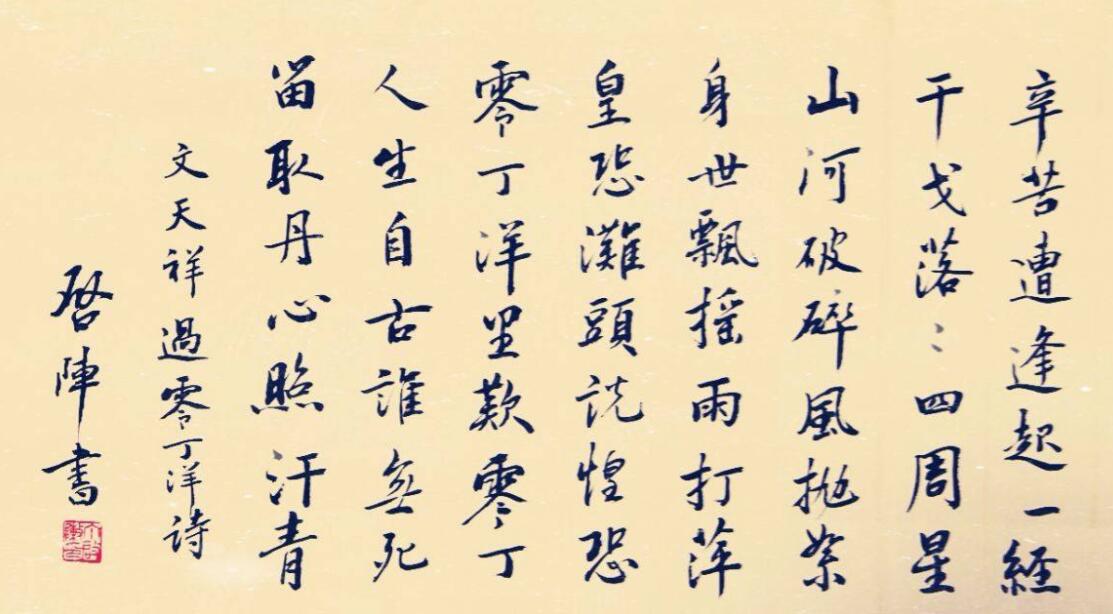 辛苦遭逢起一経
干戈落〻四周星
山河破碎風抛絮
身世飄摇雨打萍
皇恐灘頭説惶恐
零丁洋里歎零丁
人生自古誰無死
留取丹心照汗青
文天祥過零丁洋詩
啓陣書